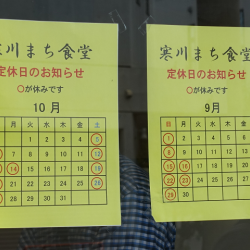 寒川まち食堂
定休日のお知らせ
〇が休みです
10月
月 火 水 木 金 土
1 2 3 4 5
7 8 9 10 11 12
14 15 16 17 18 19
21 22 23 24 25 26
28 29 30 31
寒川まち食堂
定休日のお知らせ
〇が休みです
9月
日 月 火 水 木 金
1 2 3 4 5 6
8 9 10 11 12 13
15 16 17 18 19 20
22 23 24 25 26 27
29 30